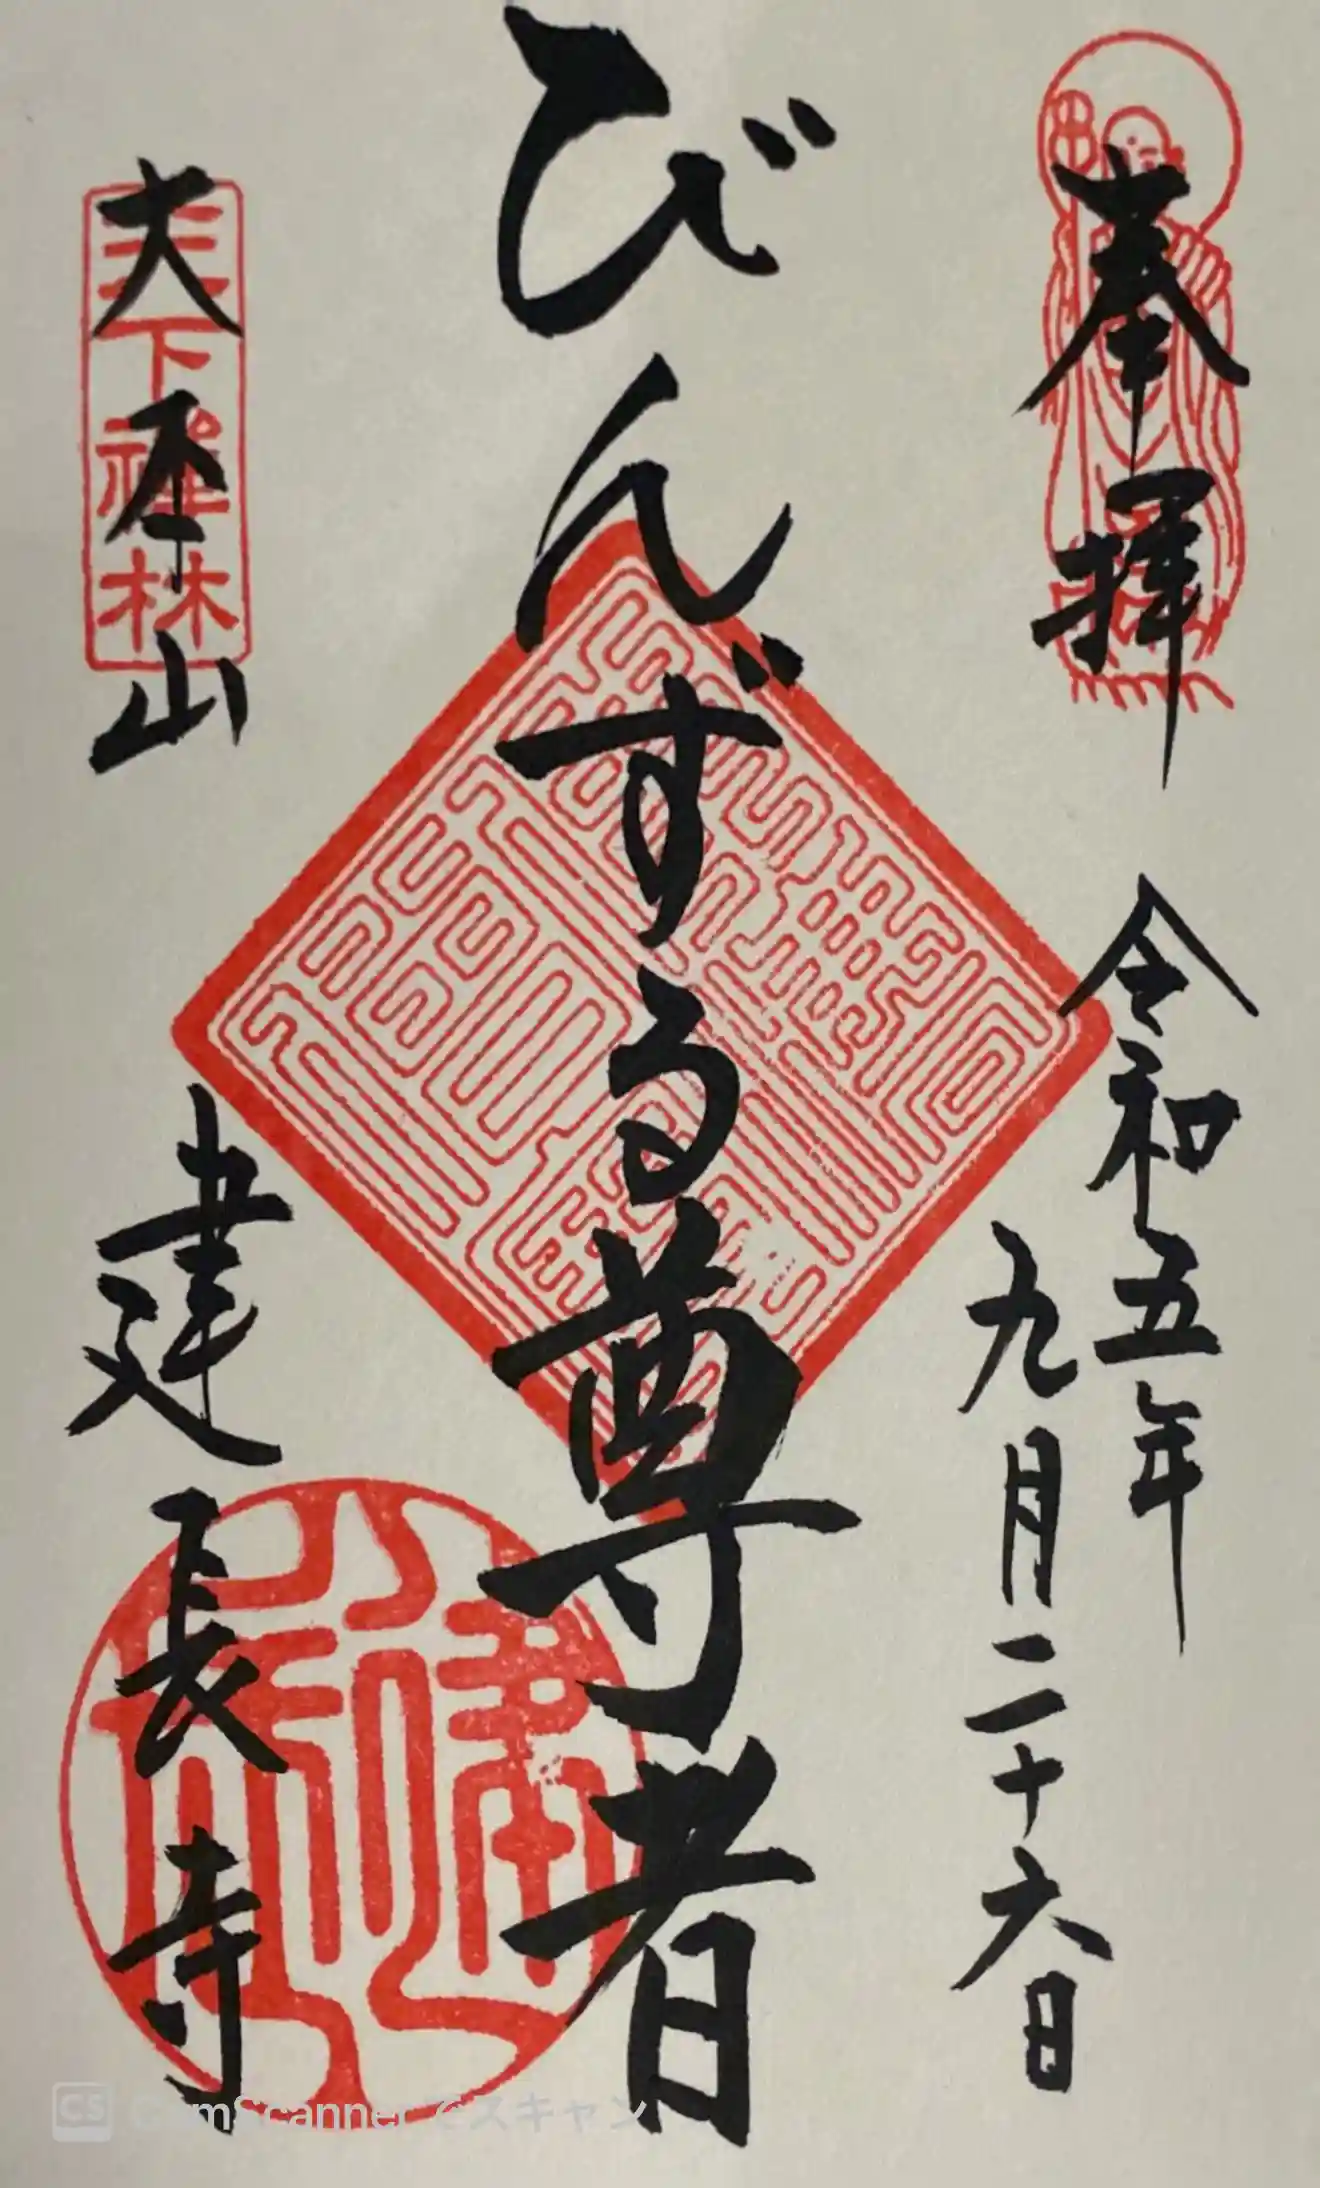 奉拝
令和五年
九月二十六日
びんずる尊者
天下禅林
大本山
建長寺
CS CamScanner でスキャン